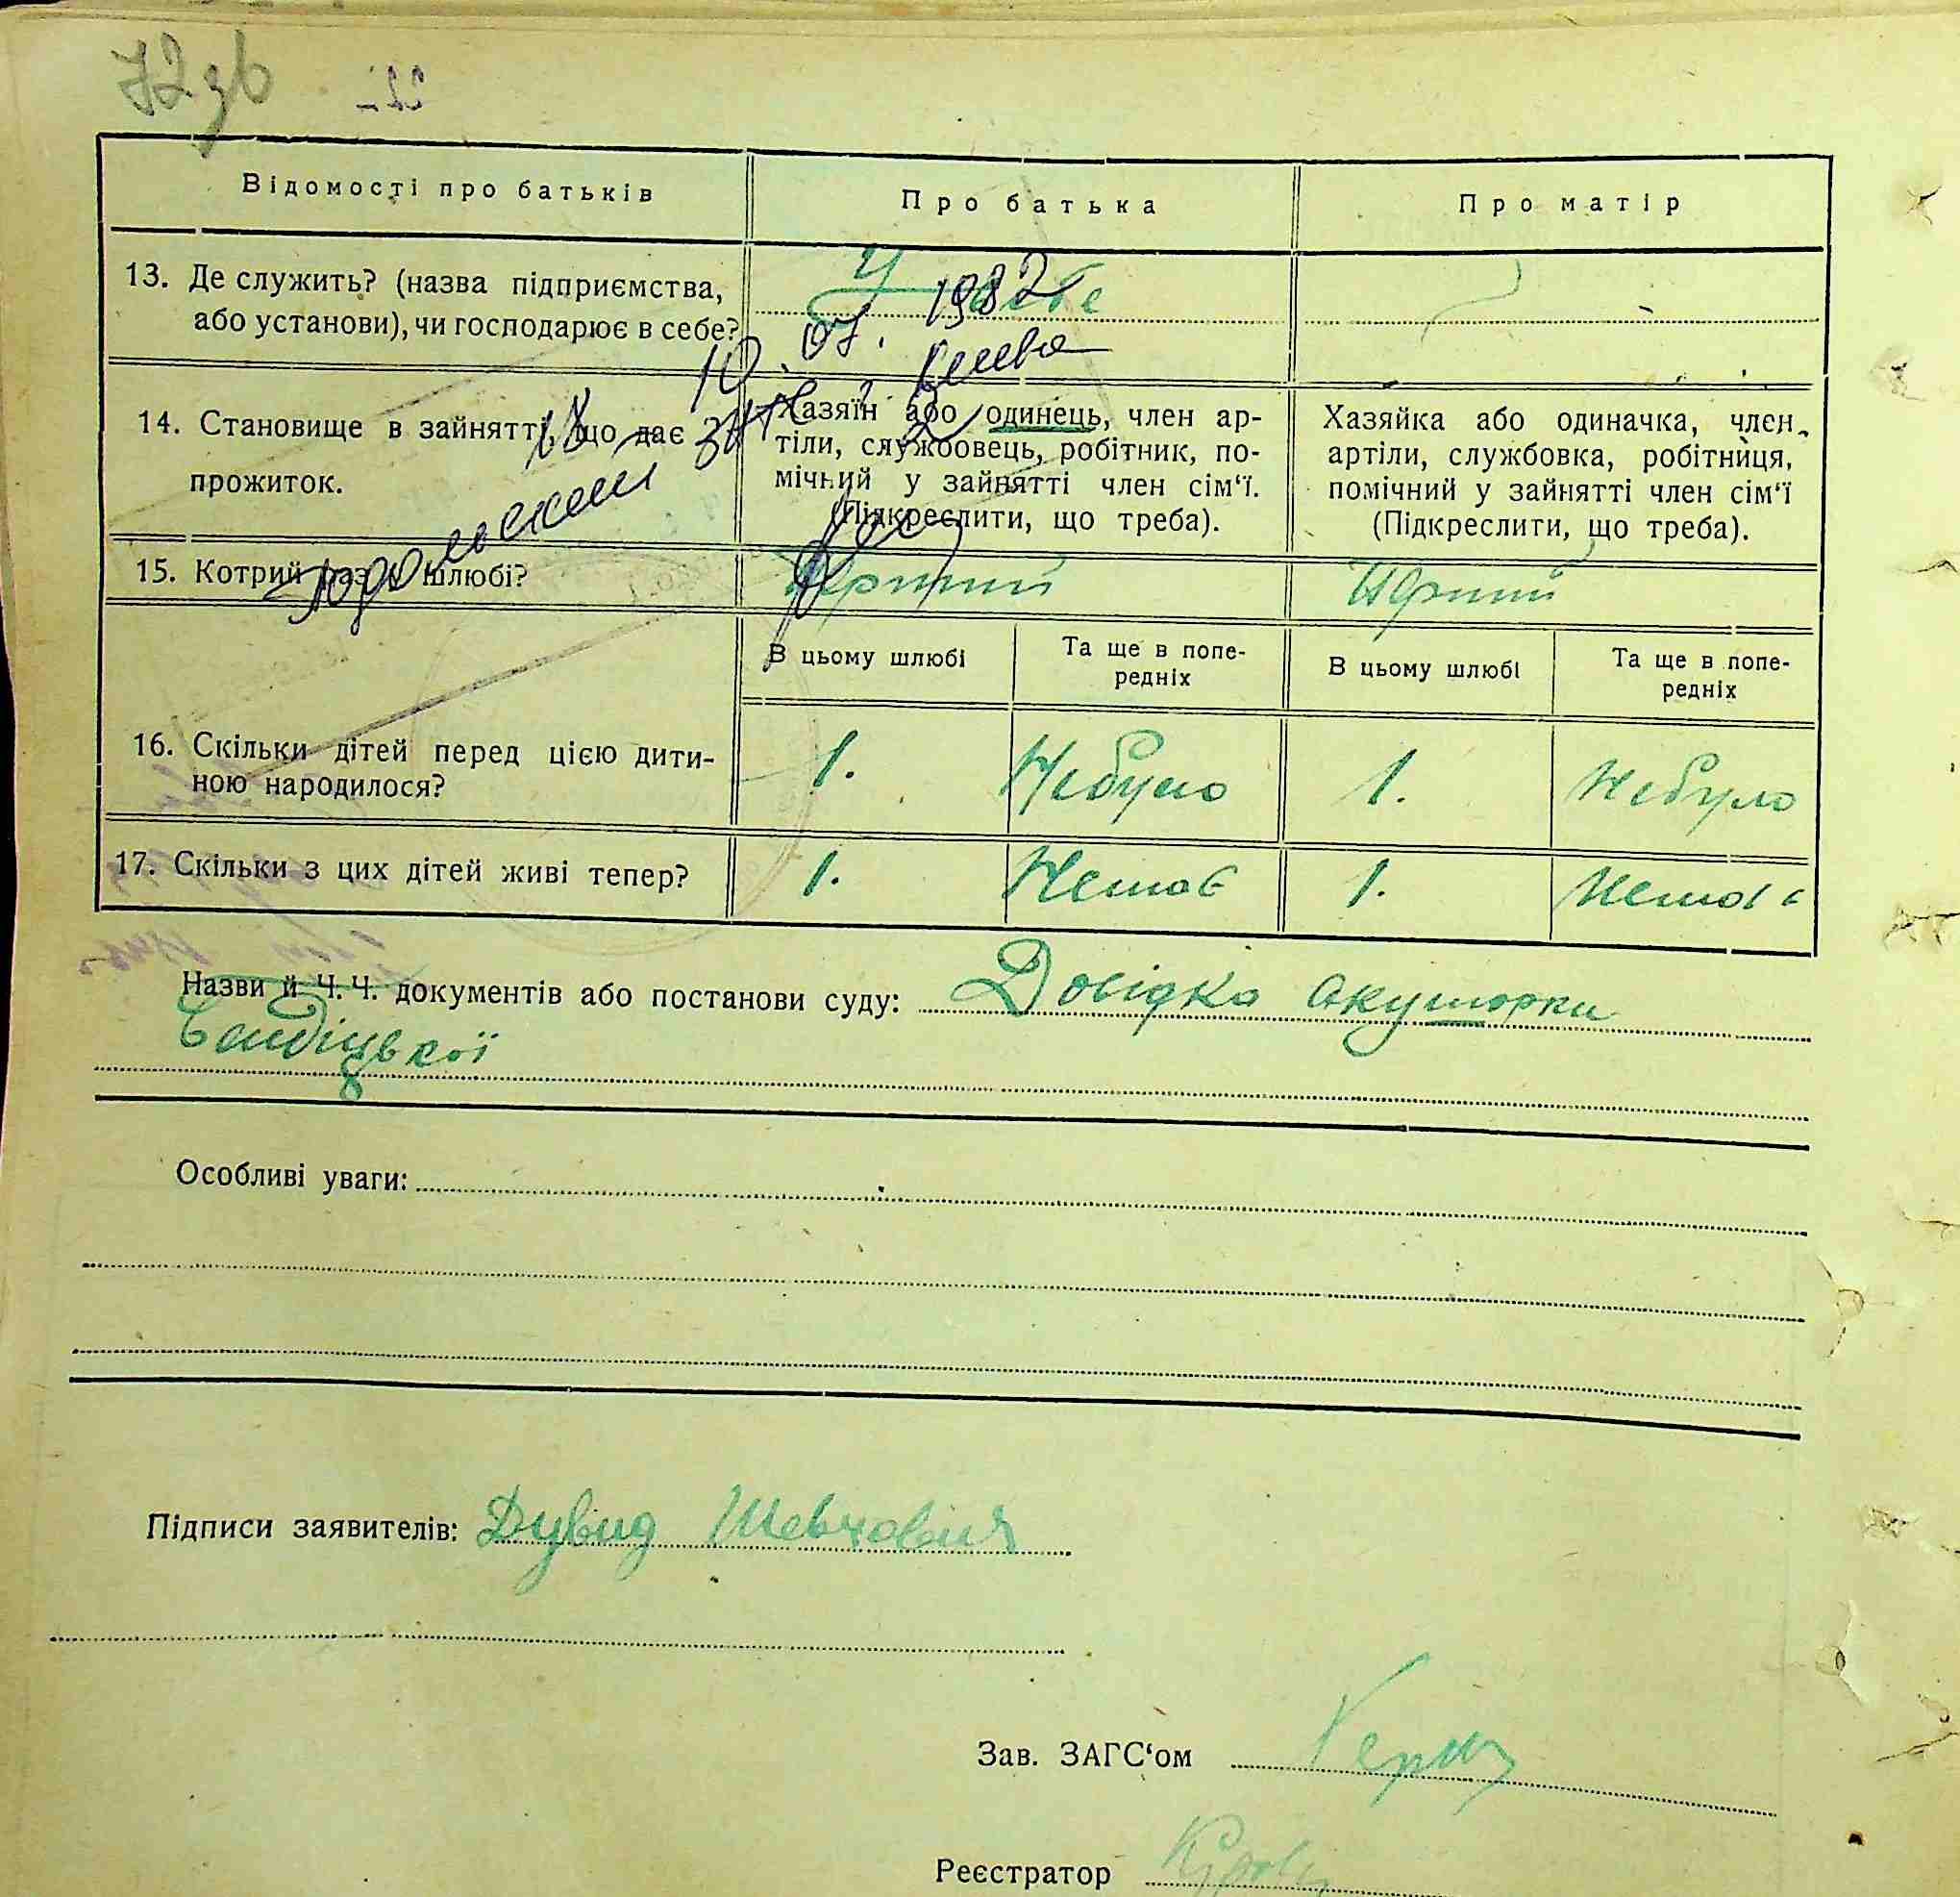 72 зв
Відомості про батьків
Про батька
Про матір
13. Де служить? (назва підприємства,
або установи), чи господарює в себе?
У себе
14. Становище в зайнятті, що дає
прожиток.
Хазяїн або одинець, член ар-
тіли, службовець, робітник, по-
мічний у зайнятті член сім‘ї.
(Підкреслити, що треба).
Хазяйка або одиначка, член
артіли, службовка, робітниця,
помічний у зайнятті член сім‘ї
(Підкреслити, що треба).
10. 07. 1982
15. Котрий раз у шлюбі?
Перший
Перший
В цьому шлюбі
Та ще в попе-
редніх
В цьому шлюбі
Та ще в попе-
редніх
16. Скільки дітей перед цією дити-
ною народилося?
1.
Небуло
1.
Небуло
17. Скільки з цих дітей живі тепер?
1.
Немає
1.
Немає
Назви й Ч. Ч. документів або постанови суду: Довідка акушорки
Особливі уваги:
Підписи заявителів: Дувид
Зав. ЗАГС‘ом
Реєстратор